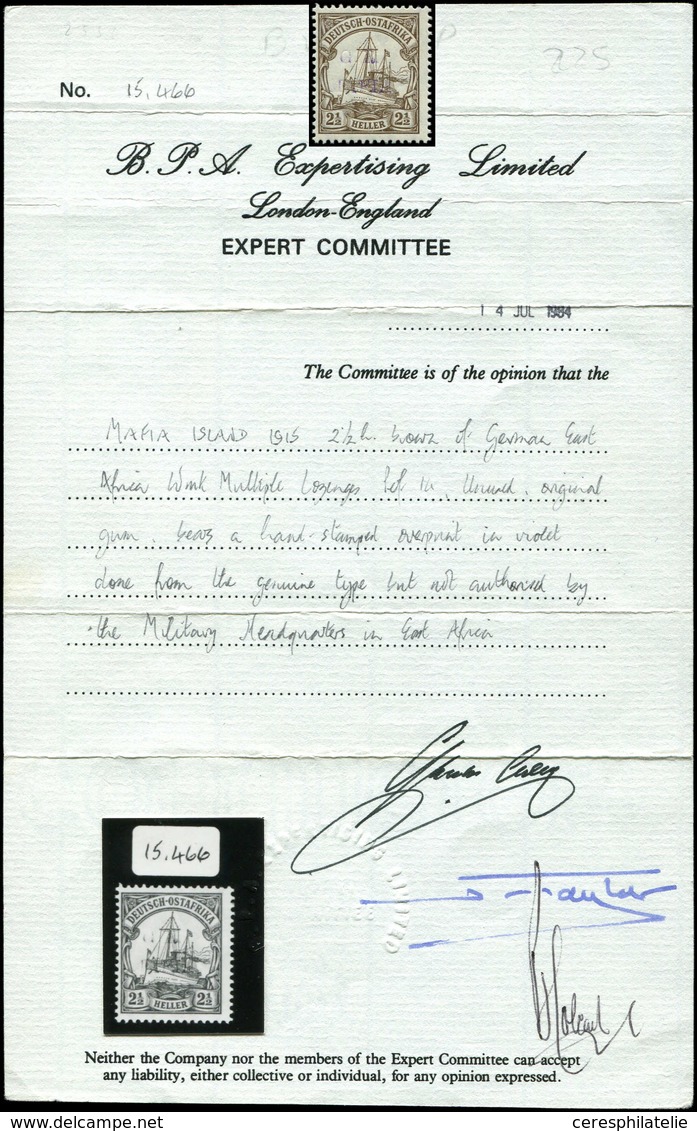 225
No. 15.466
DEUTSCH-OSTAFRIKA
2½ HELLER 2½
B.P.A. Expertising Limited
London-England
EXPERT COMMITTEE
14 JUL 1984
The Committee is of the opinion that the
MAFIA ISLAND 1915 2½h. brown of German East
Africa Wmk Multiple Lozenges unused, original
gum, bears a hand-stamped overprint in violet
done from the genuine type but not authorised by
the Military Headquarters in East Africa
15.466
DEUTSCH-OSTAFRIKA
2½ HELLER 2½
LIMITED
Neither the Company nor the members of the Expert Committee can accept
any liability, either collective or individual, for any opinion expressed.
www.delcampe.net
ceresphilatelie